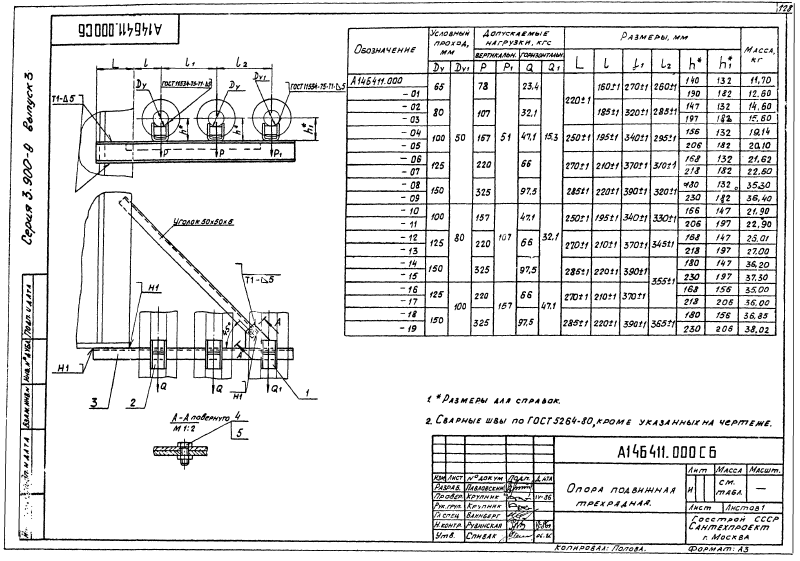 128
А14Б411.000 СБ
Серия 3.900-9 Выпуск 3
L l l1 l2
Dy Dy Dy1
ГОСТ 11534-75-Т1-⊿5
ГОСТ 11534-75-Т1-⊿5
Т1-⊿5
h* h* h1*
P P P1
Уголок 50х50х5
Т1-⊿5
Н1
45°
А
А
Н1
Н1
3 2 Q Q Q1 1
А-А повернуто
М 1:2
4
5
Обозначение | Условный проход, мм | Допускаемые нагрузки, кгс | Размеры, мм | Масса, кг
вертикальн. | горизонтальн.
Dy | Dy1 | P | P1 | Q | Q1 | L | l | l1 | l2 | h* | h1*
А14Б411.000 | 65 | 50 | 78 | 51 | 23.4 | 15.3 | 220±1 | 160±1 | 270±1 | 260±1 | 140 | 132 | 11,70
- 01 | 190 | 182 | 12.60
- 02 | 80 | 107 | 32,1 | 185±1 | 320±1 | 285±1 | 147 | 132 | 14,60
- 03 | 197 | 182 | 15.60
- 04 | 100 | 157 | 47,1 | 250±1 | 195±1 | 340±1 | 295±1 | 156 | 132 | 19,14
- 05 | 206 | 182 | 20,10
- 06 | 125 | 220 | 66 | 270±1 | 210±1 | 370±1 | 310±1 | 168 | 132 | 21,62
- 07 | 218 | 182 | 22.60
- 08 | 150 | 325 | 97,5 | 285±1 | 220±1 | 390±1 | 320±1 | 180 | 132 | 35,30
- 09 | 230 | 182 | 36,40
- 10 | 100 | 80 | 157 | 107 | 47.1 | 32,1 | 250±1 | 195±1 | 340±1 | 330±1 | 156 | 147 | 21,90
- 11 | 206 | 197 | 22,90
- 12 | 125 | 220 | 66 | 270±1 | 210±1 | 370±1 | 345±1 | 168 | 147 | 25,01
- 13 | 218 | 197 | 27.00
- 14 | 150 | 325 | 97,5 | 285±1 | 220±1 | 390±1 | 355±1 | 180 | 147 | 36,20
- 15 | 230 | 197 | 37,30
- 16 | 125 | 100 | 220 | 157 | 66 | 47.1 | 270±1 | 210±1 | 370±1 | 168 | 156 | 35,00
- 17 | 218 | 206 | 36,00
- 18 | 150 | 325 | 97,5 | 285±1 | 220±1 | 390±1 | 365±1 | 180 | 156 | 36,85
- 19 | 230 | 206 | 38,02
1. * Размеры для справок.
2. Сварные швы по ГОСТ 5264-80, кроме указанных на чертеже.
А14Б411.000 СБ
Изм Лист № докум Подп. Дата
Разраб. Павловский
Провер. Крупник IV-86
Рук.груп. Крупник
Гл.спец. Вайнберг
Н.контр. Рубинская
Утв. Спивак
Опора подвижная
трехрядная.
Лит Масса Масшт.
И см. табл. —
Лист Листов 1
Госстрой СССР
Сантехпроект
г. Москва
Копировал: Попова. Формат: А3
Подп. и дата
Инв. № дубл.
Взам. инв. №
Подп. и дата